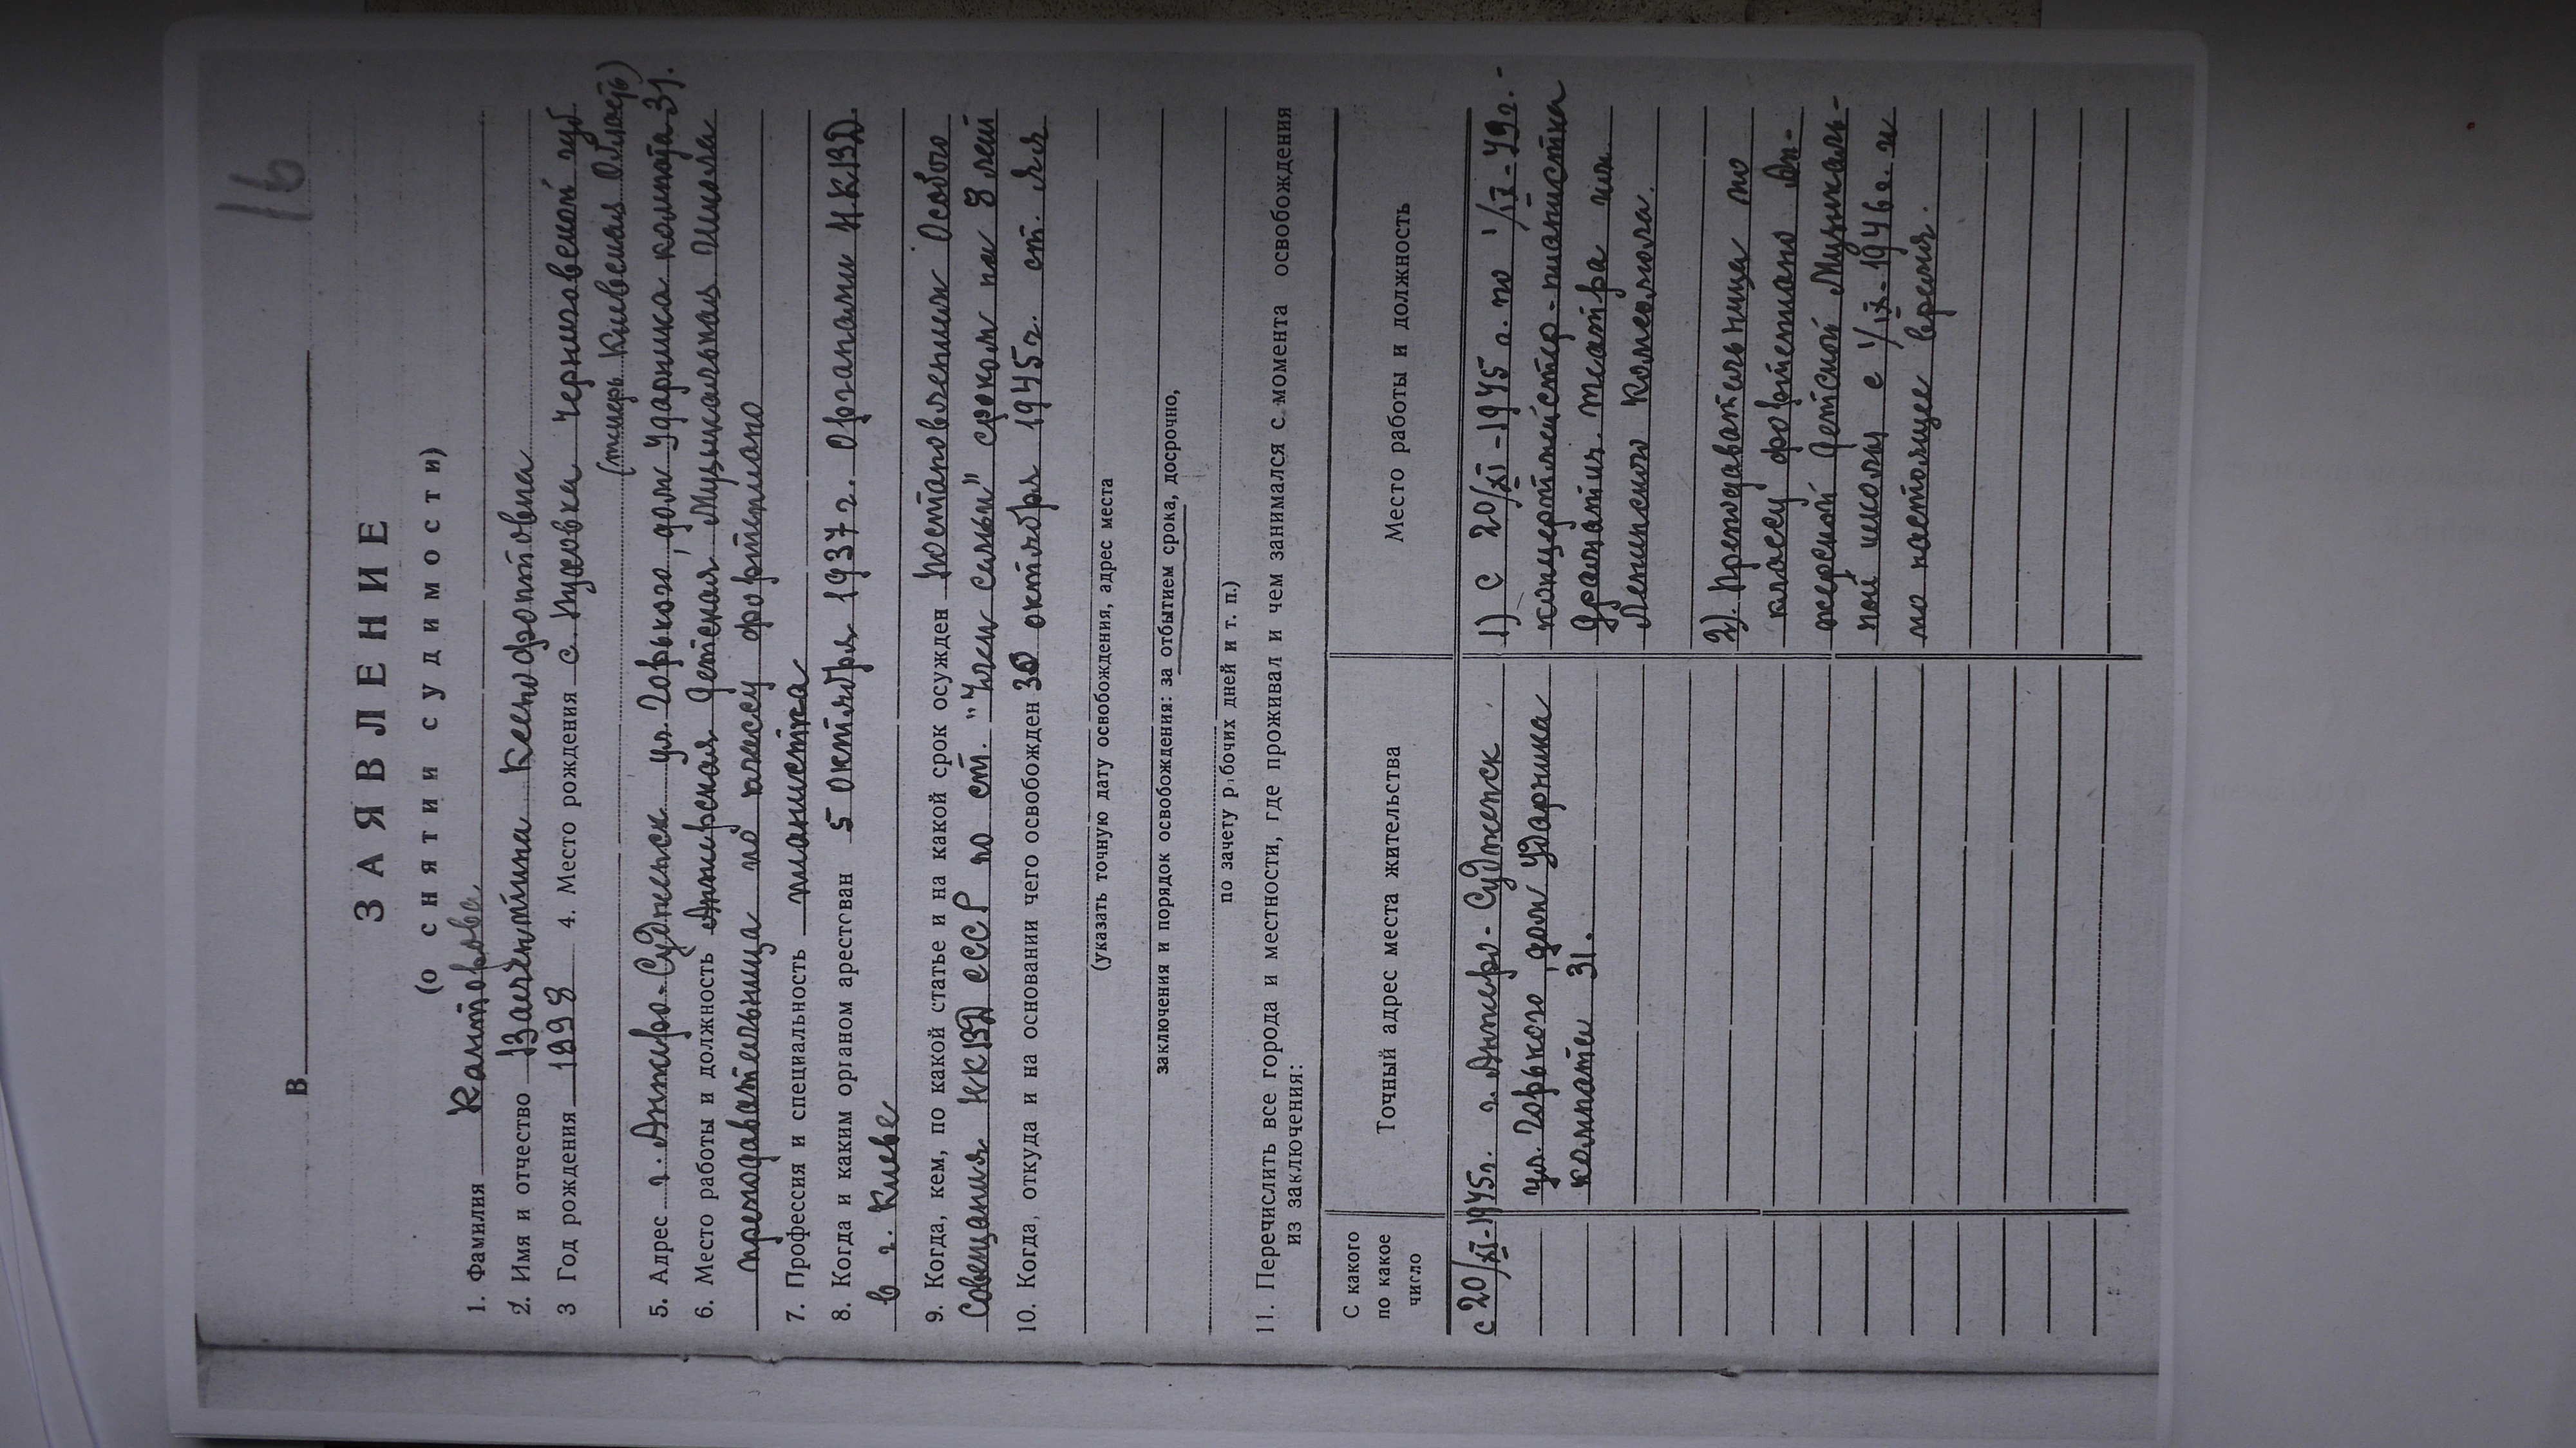 16
В
ЗАЯВЛЕНИЕ
(о снятии судимости)
1. Фамилия Канторова
2. Имя и отчество Валентина Ксенофонтовна
3 Год рождения 1898 4. Место рождения с. Черниговской губ
(теперь Киевская область)
5. Адрес г. Анжеро-Судженск ул. Горького, дом Ударника комната 31.
6. Место работы и должность Анжерская Детская Музыкальная Школа
преподавательница по классу фортепиано
7. Профессия и специальность пианистка
8. Когда и каким органом арестован 5 октября 1937 г. Органами НКВД
в г. Киеве
9. Когда, кем, по какой статье и на какой срок осужден Постановлением Особого
Совещания НКВД СССР по ст. "Член семьи" сроком на 8 лет
10. Когда, откуда и на основании чего освобожден 30 октября 1945 г. ст. Яя
(указать точную дату освобождения, адрес места
заключения и порядок освобождения: за отбытием срока, досрочно,
по зачету рабочих дней и т. п.)
11. Перечислить все города и местности, где проживал и чем занимался с момента освобождения
из заключения:
С какого
по какое
число
Точный адрес места жительства
Место работы и должность
с 20/XI-1945г. г. Анжеро-Судженск
ул. Горького, дом Ударника
комнаты 31.
1) С 20/XI-1945 г. по 1/IX-49г.-
концертмейстер-пианистка
Драматич. театра им
Ленинского Комсомола.
2). Преподавательница по
классу фортепиано Ан-
жерской Детской Музыкаль-
ной школы с 1/IX-1946г. и
по настоящее время.